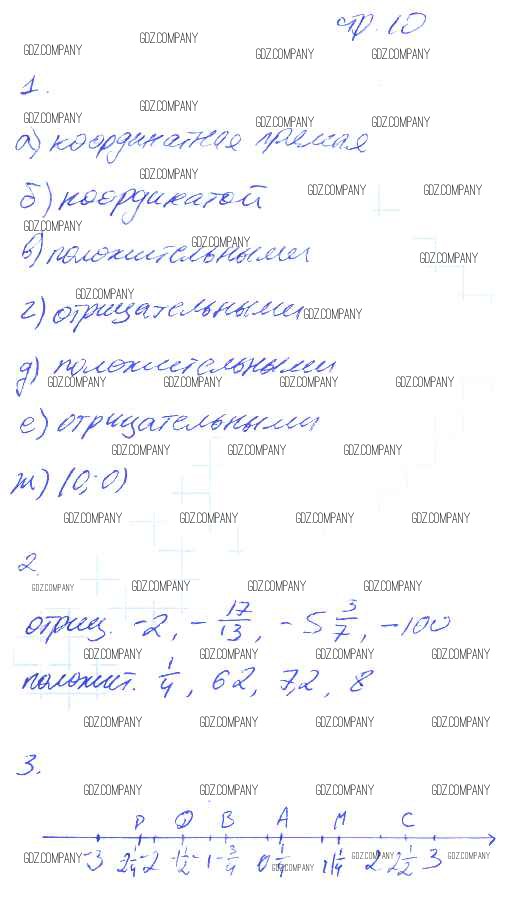 стр. 10
1.
а) координатная прямая
б) координатой
в) положительными
г) отрицательными
д) положительными
е) отрицательными
ж) (0; 0)
2.
отриц. -2, -17/13, -5 3/7, -100
положит. 1/4, 62, 7,2, 8
3.
D Q B A M C
-3 2 1/4 -2 -1 1/2 -1 -3/4 0 1/4 1 1 1/4 2 2 1/2 3
GDZ.COMPANY